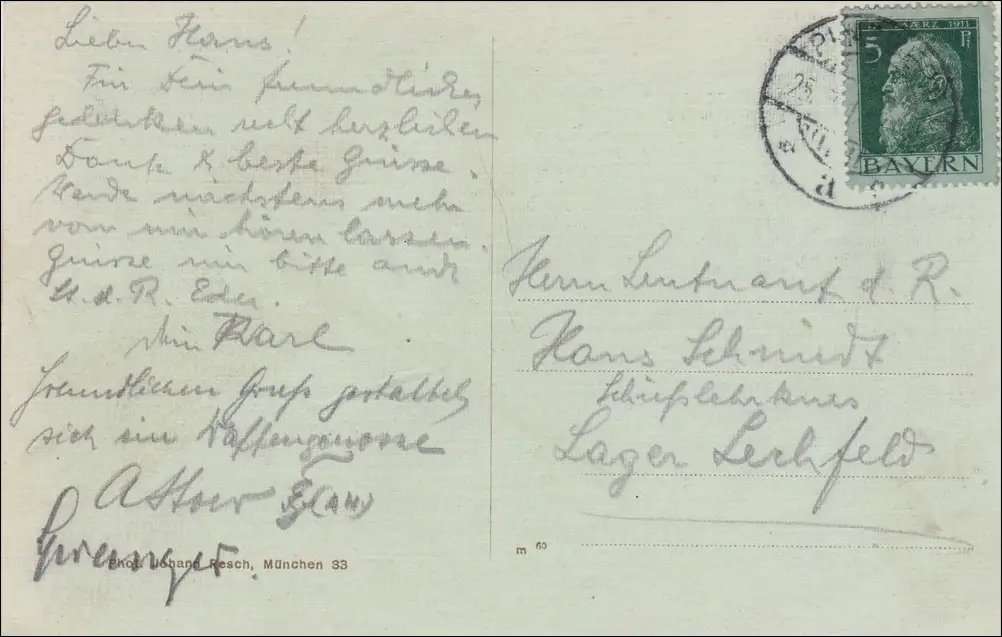 Lieber Hans!
Für Dein freundliches
gedenken recht herzlichen
Dank & beste Grüsse.
Werde nächstens mehr
von mir hören lassen.
Grüsse mir bitte auch
Lt. d. R. Eder.
Dein Karl
Freundlichen Gruß gestattet
sich ein Waffengenosse
Phot. Johann Resch, München 33
MÆRZ 1911
5 Pf
BAYERN
a
Herrn Leutnant d. R.
Hans Schmidt
Schießlehrkurs
Lager Lechfeld
m 60